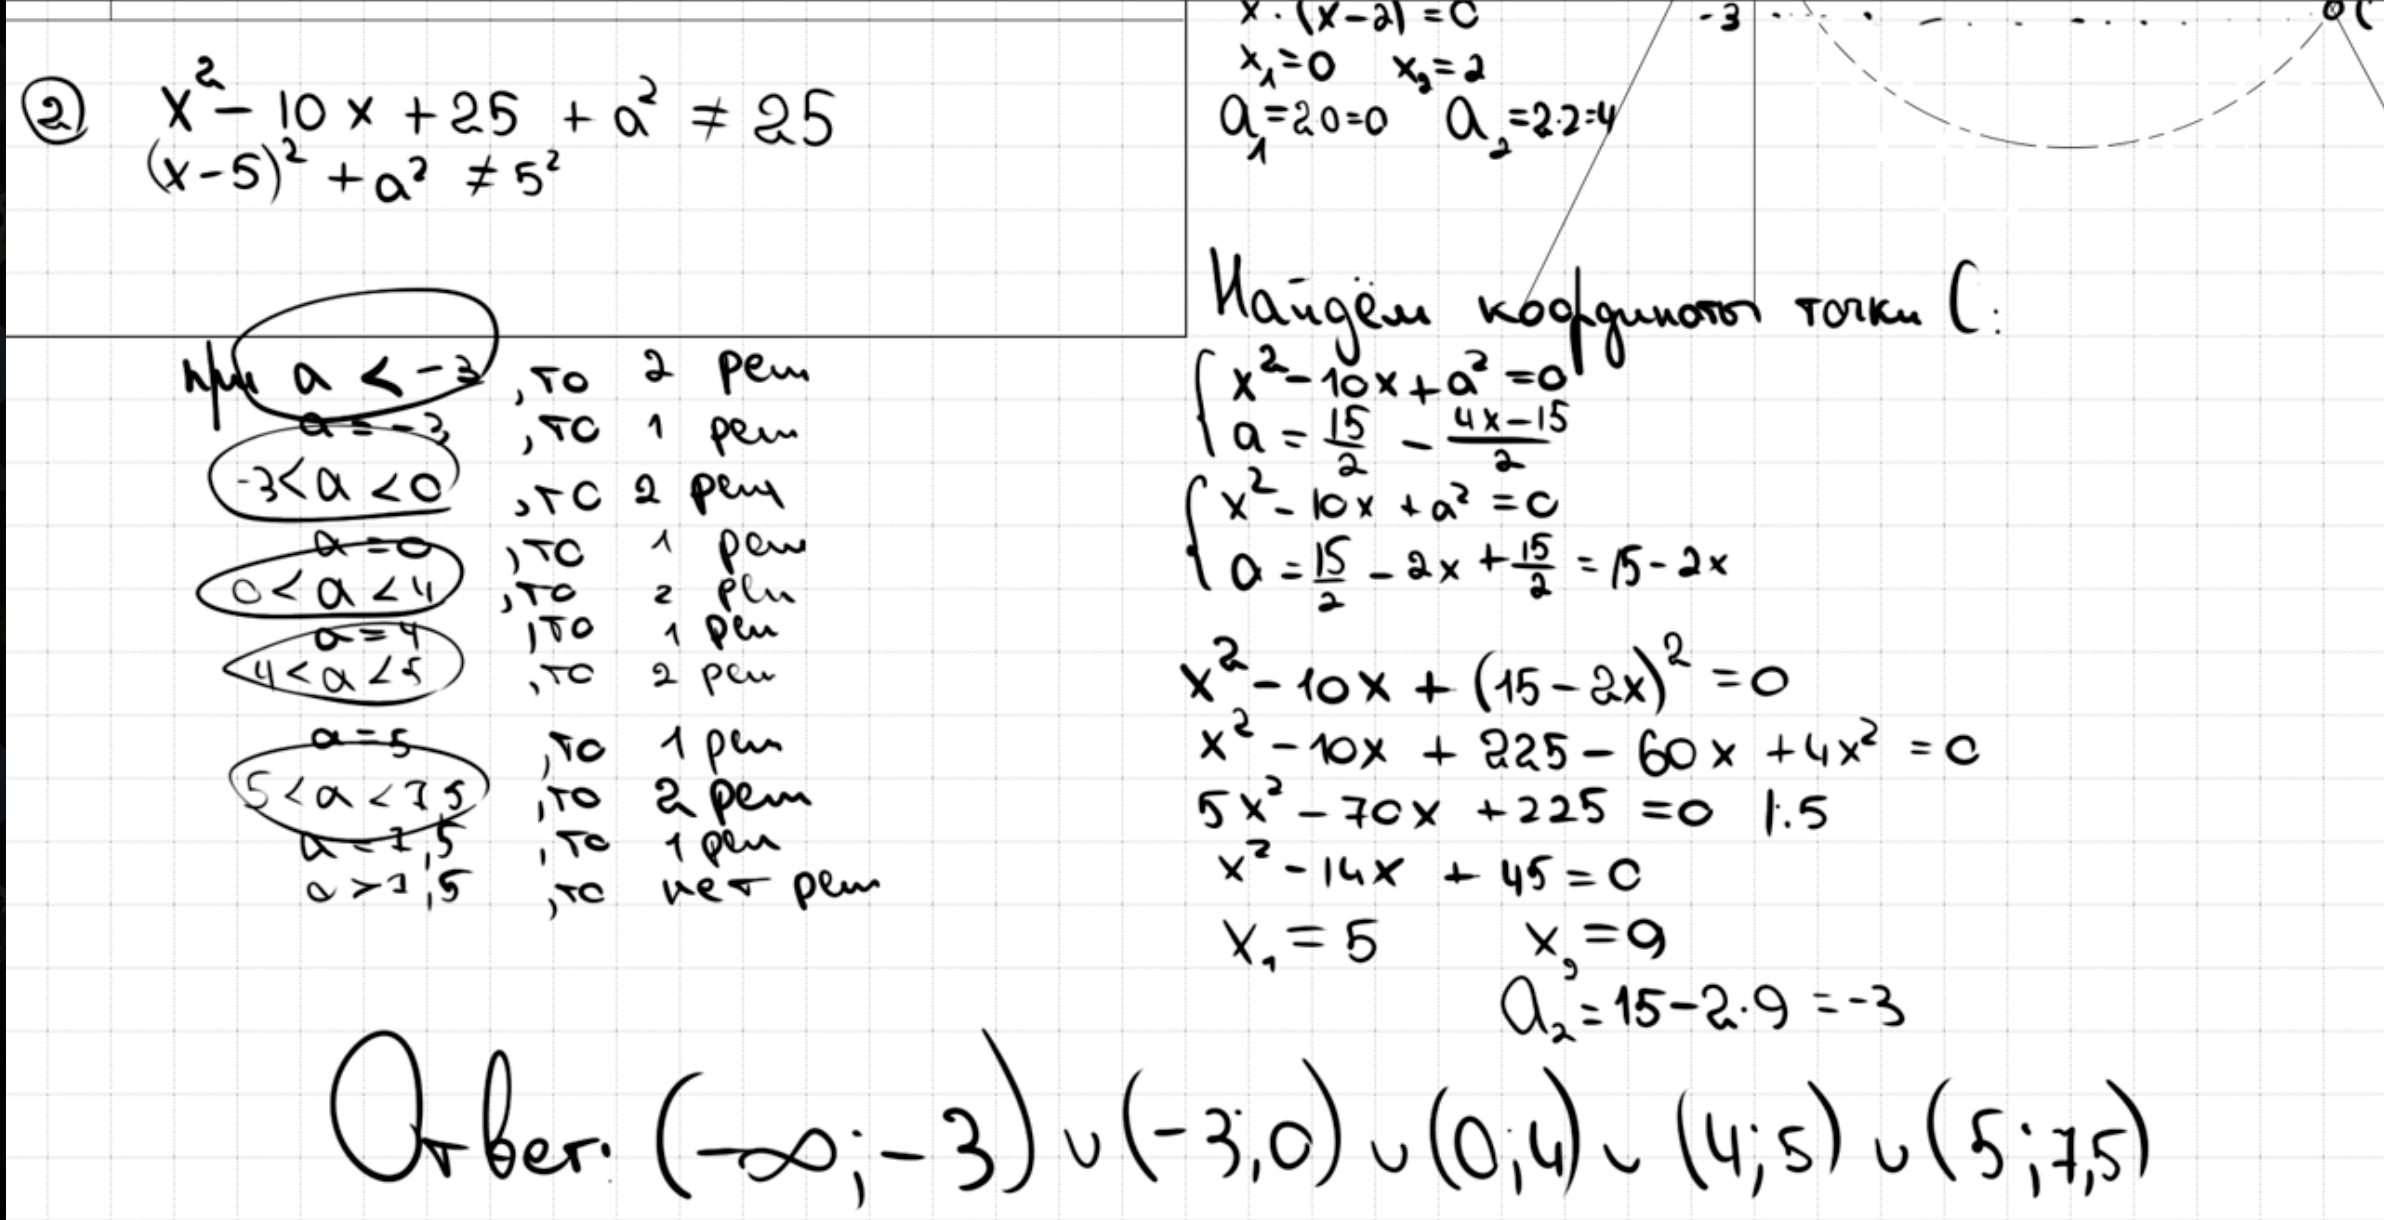 ② x² - 10x + 25 + a² ≠ 25
(x-5)² + a² ≠ 5²
при a < -3 , то 2 реш
a = -3 , то 1 реш
-3 < a < 0 , то 2 реш
a = 0 , то 1 реш
0 < a < 4 , то 2 реш
a = 4 , то 1 реш
4 < a < 5 , то 2 реш
a = 5 , то 1 реш
5 < a < 7,5 , то 2 реш
a = 7,5 , то 1 реш
a > 7,5 , то нет реш
x · (x-2) = 0
x₁ = 0 x₂ = 2
a₁ = 2·0 = 0 a₂ = 2·2 = 4
-3
C
Найдём координаты точки C:
{ x² - 10x + a² = 0
a = 15/2 - (4x-15)/2
{ x² - 10x + a² = 0
a = 15/2 - 2x + 15/2 = 15 - 2x
x² - 10x + (15 - 2x)² = 0
x² - 10x + 225 - 60x + 4x² = 0
5x² - 70x + 225 = 0 |:5
x² - 14x + 45 = 0
x₁ = 5 x₂ = 9
a₂ = 15 - 2·9 = -3
Ответ: (-∞; -3) ∪ (-3; 0) ∪ (0; 4) ∪ (4; 5) ∪ (5; 7,5)